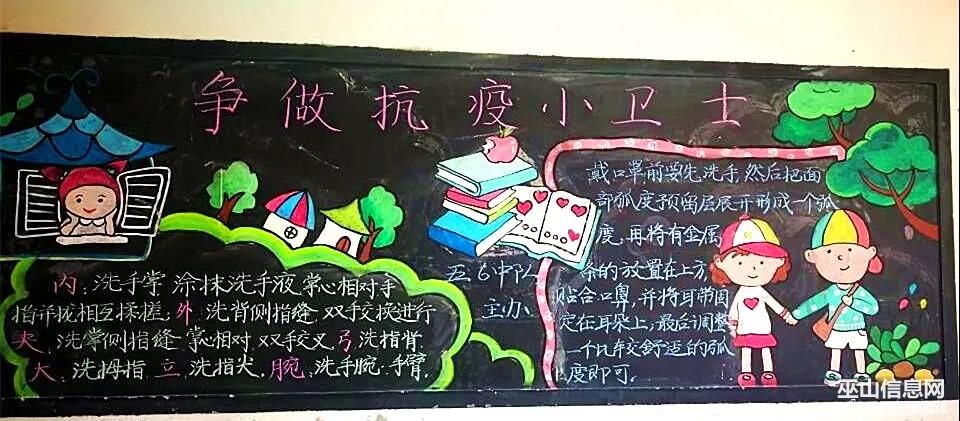 争做抗疫小卫士
内，洗手掌 涂抹洗手液，掌心相对手
指并拢相互揉搓，外，洗背侧指缝 双手交换进行
夹，洗掌侧指缝 掌心相对 双手交叉，弓，洗指背
大，洗拇指 立，洗指尖，腕，洗手腕 手臂，
五6中队
主办
戴口罩前要先洗手 然后把面
部弧度预留层展开形成一个弧
度，再将有金属
条的放置在上方
贴合口鼻，并将耳带固
定在耳朵上，最后调整
一个比较舒适的弧
度即可。
巫山信息网